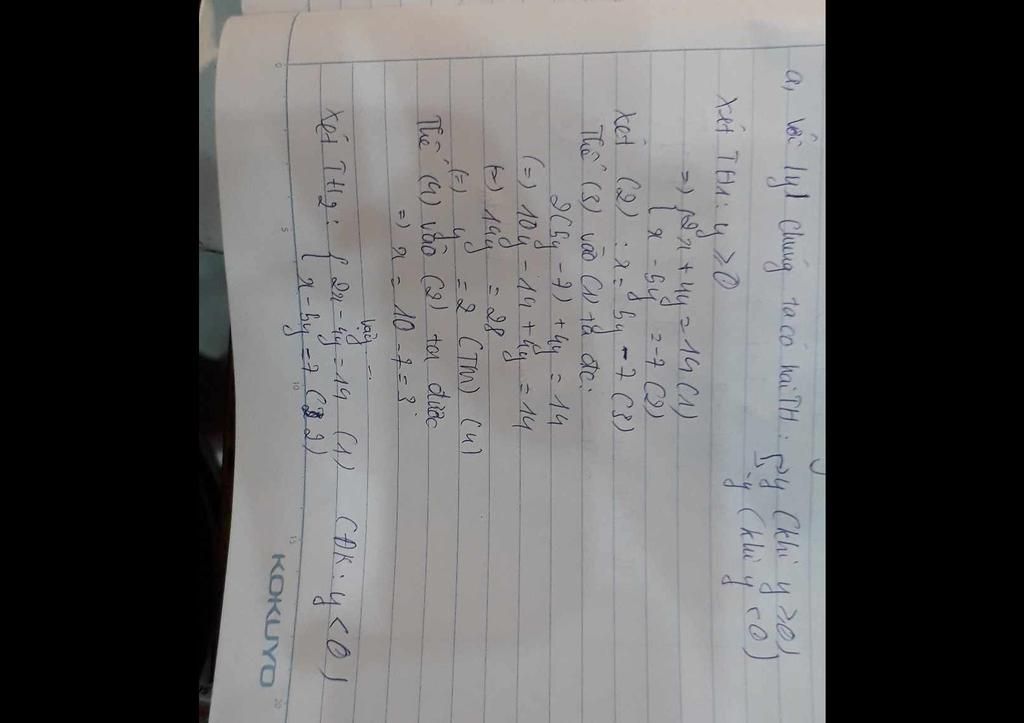 a, với |y| chúng ta có hai TH: y (khi y ≥ 0)
-y (khi y < 0)
Xét TH1: y ≥ 0
=> { 2x + 4y = 14 (1)
x - 5y = -7 (2)
Xét (2): x = 5y - 7 (3)
Thế (3) vào (1) ta đc:
2(5y - 7) + 4y = 14
(=) 10y - 14 + 4y = 14
(=) 14y = 28
(=) y = 2 (TM) (4)
Thế (4) vào (2) ta được
=> x = 10 - 7 = 3
Vậy ...
Xét TH2: { 2x - 4y = 14 (1) (ĐK: y < 0)
x - 5y = 7 (2)
KOKUYO
0 5 10 15 20